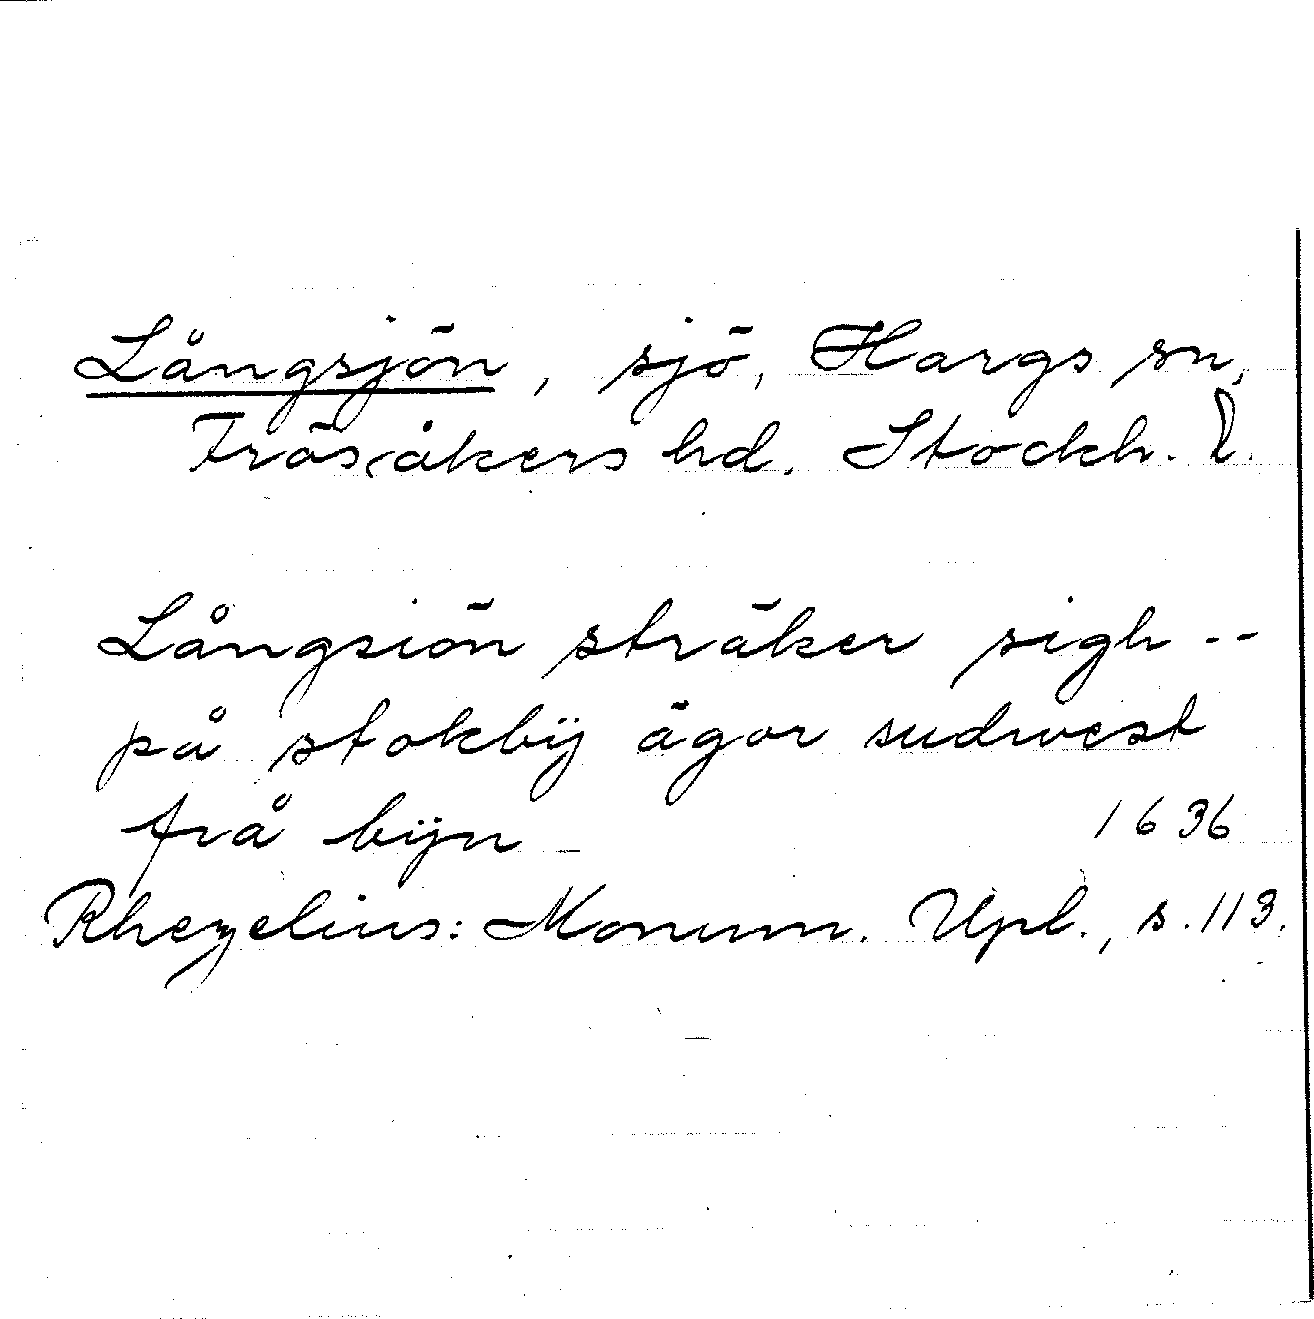 Långsjön, sjö, Hargs sn,
Frösåkers hd. Stockh. l.
Långsiön sträker sigh --
på stokbÿ ägor sudwest
frå bÿn – 1636
Rhezelius: Monum. Upl., s. 113.